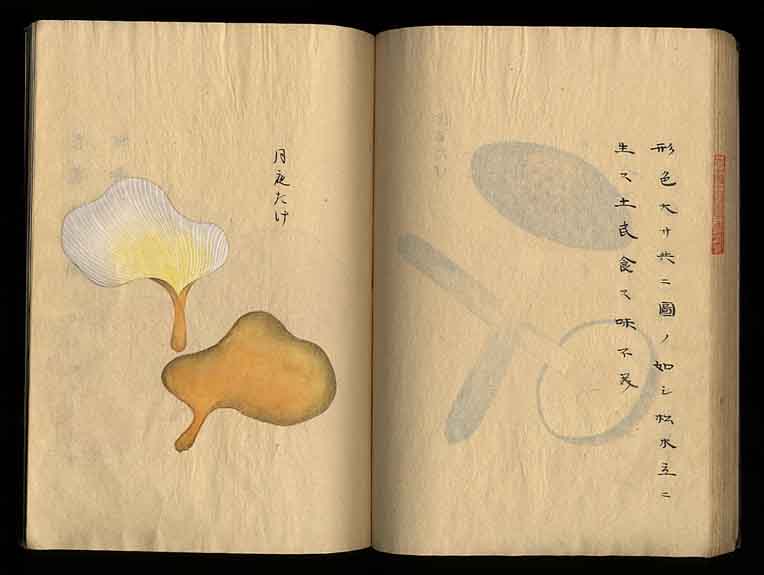 形色大サ共ニ圖ノ如シ松木立ニ
生ス土民食ス味不美
月夜たけ